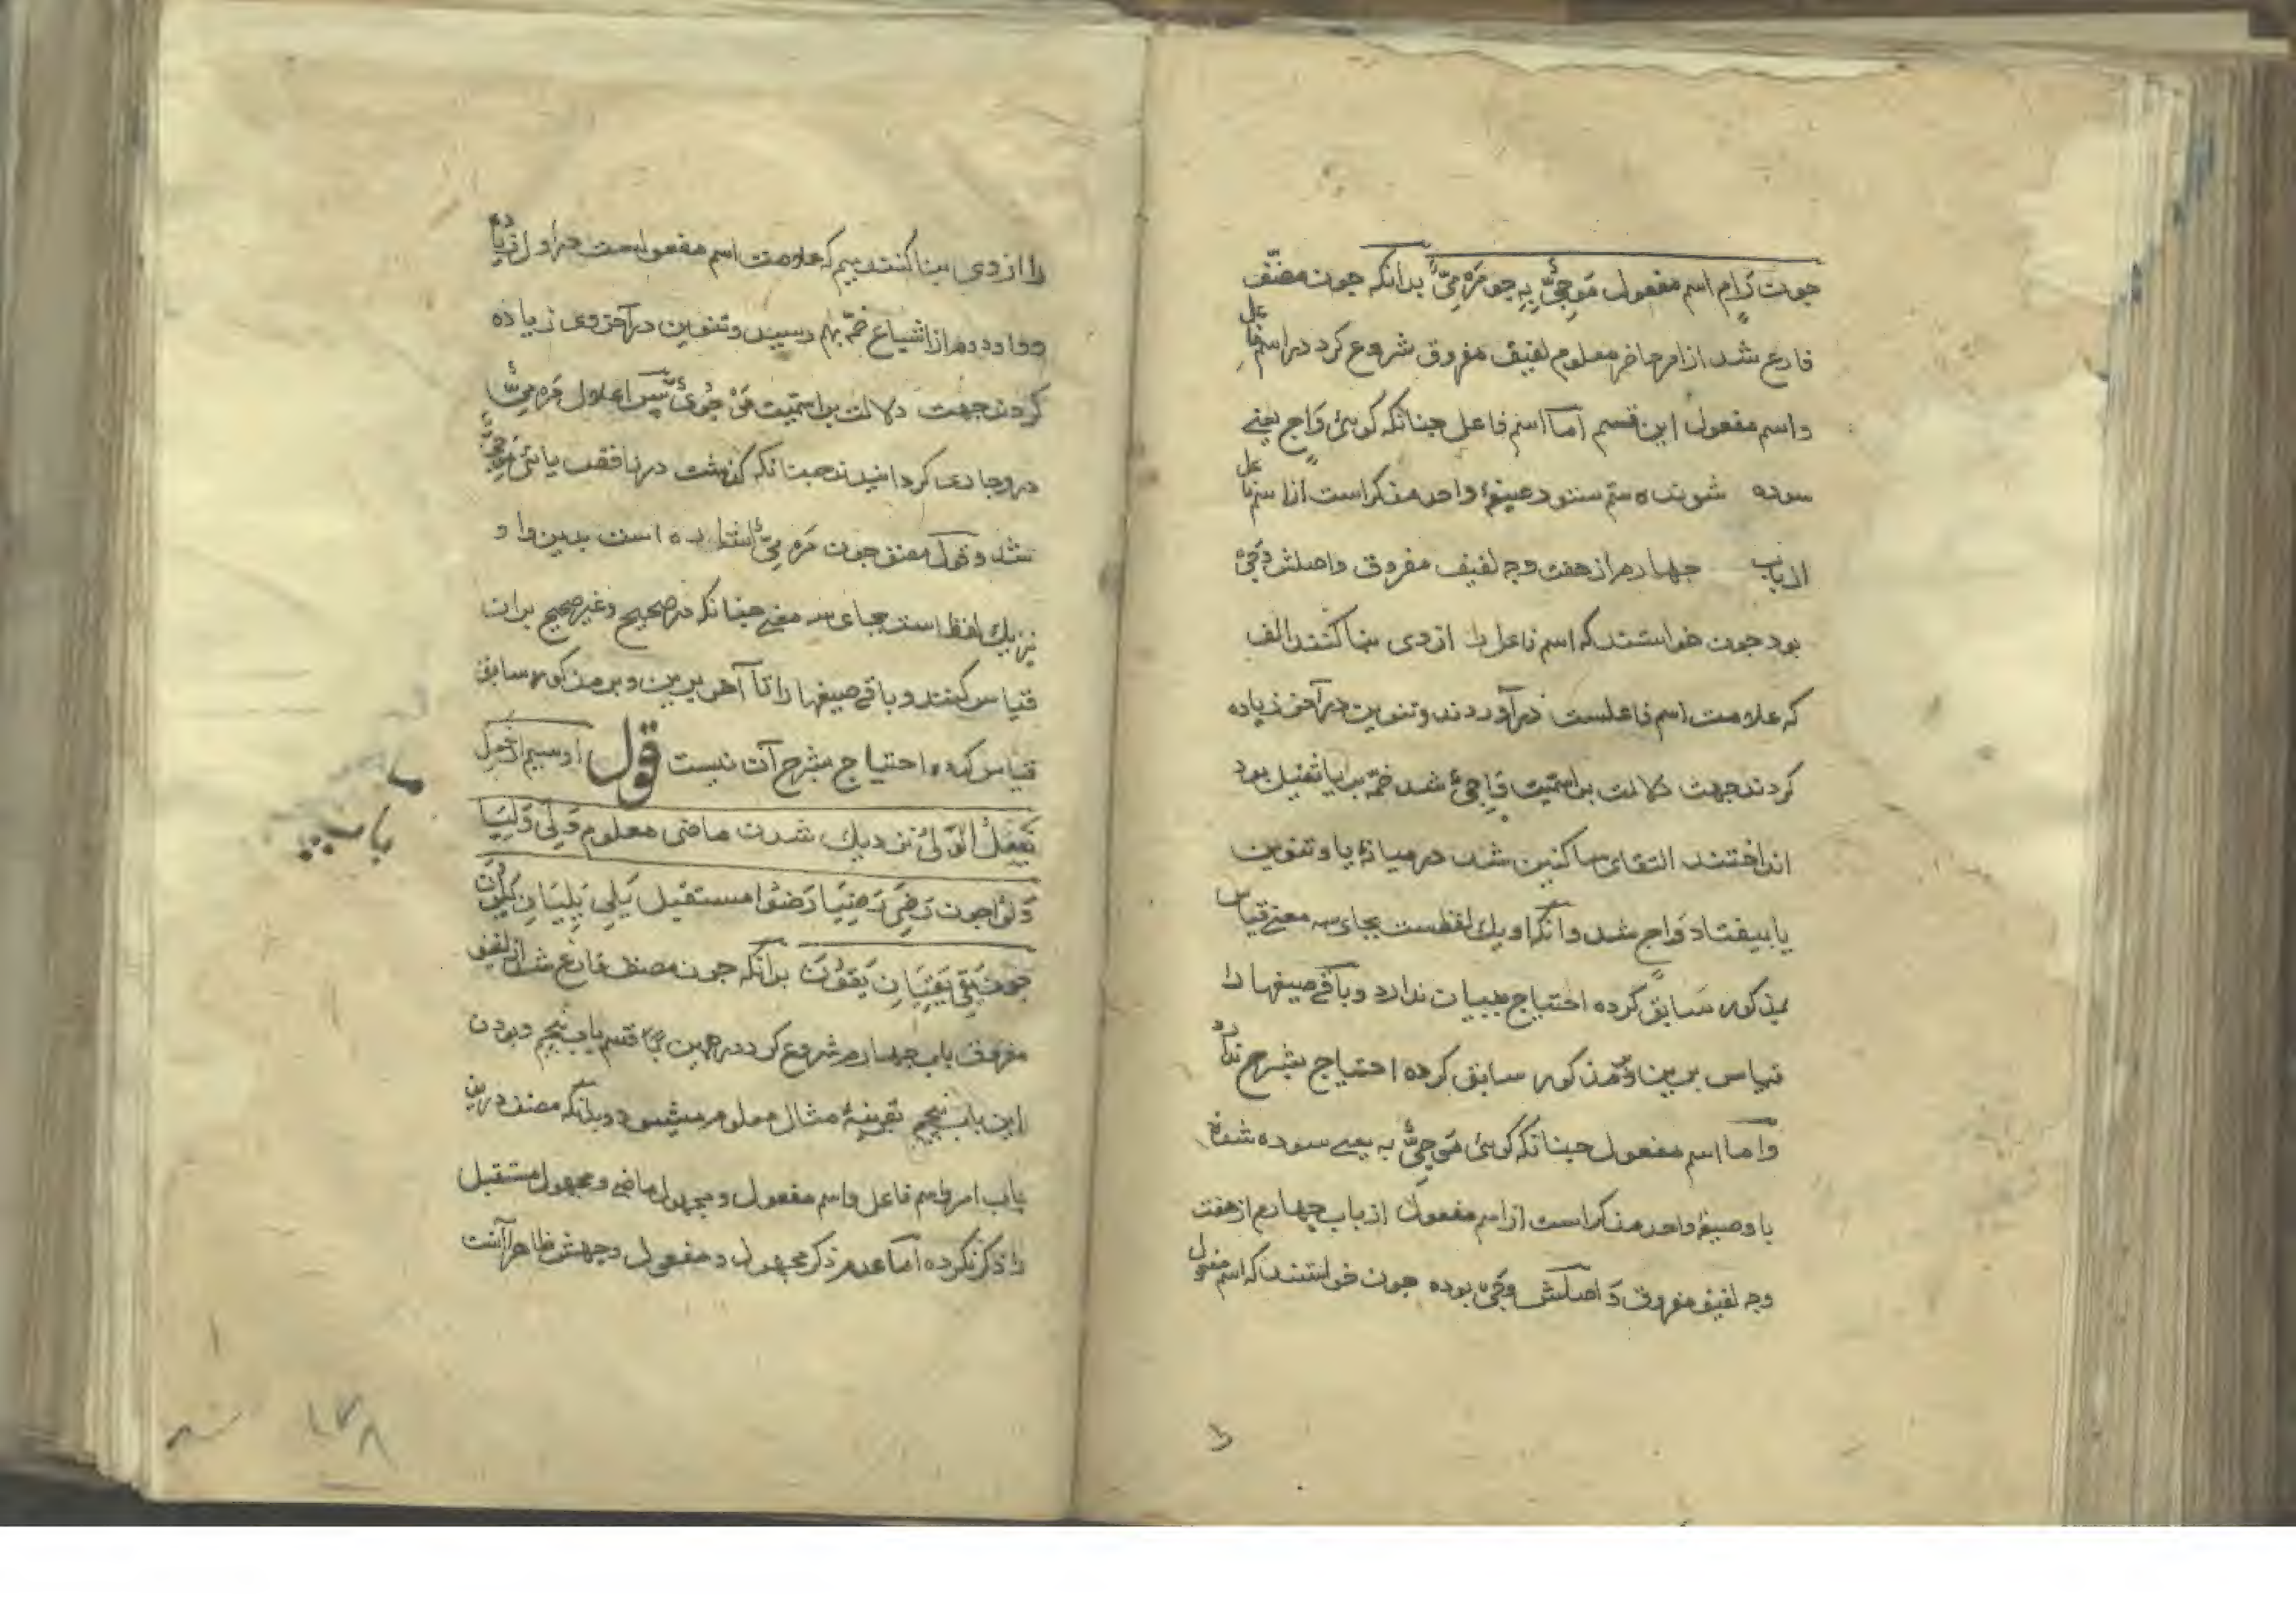 چون رام اسم مفعول موجیّ به چو مرمیّ بدانکه چون مصنّف
فارغ شد از امر حاضر معلوم لفیف مفروق شروع کرد در اسم فاعل
و اسم مفعول این قسم امّا اسم فاعل چنانکه کوئی واج یعنے
سوده شونده سم ستور صیغهٔ واحد مذکر است از اسم فاعل
از باب چهارم از هفت وجه لفیف مفروق و اصلش وجی
بود چون خواستند که اسم فاعل را از وی بنا کنند الف
که علامت اسم فاعلست درآوردند و تنوین در آخر زیاده
کردند جهت دلالت بر اسمیّت واجی شد ضمّه بر یا ثقیل بود
انداختند التقای ساکنین شد در میانهٔ یا و تنوین
یا بیفتاد واج شد و آنکه او یک لفظست بجای سه معنے قیاس
بمذکور سابق کرده احتیاج ببیان ندارد و باقے صیغها را
قیاس برین و مذکور سابق کرده احتیاج بشرح ندارد
و امّا اسم مفعول چنانکه کوئی موجیّ به یعنے سوده شده
با و صیغهٔ واحد مذکر است از اسم مفعول از باب چهارم از هفت
وجه لفیف مفروق و اصلش وجی بوده چون خواستند که اسم مفعول
را
را از وی بنا کنند میم که علامت اسم مفعولست در اول زیاده
و واو دوم از اشباع ضمّه بهم رسید و تنوین در آخر وی زیاده
کردند جهت دلالت بر اسمیّت موجوی پس اعلال مرمیّ
درو جاری کردانیدند چنانکه کذشت در ناقص یائی موجیّ
شد و قول مصنف چون مرمیّ اشاره است بدین و او
نیز یک لفظ است بجای سه معنے چنانکه در صحیح و غیر صحیح بران
قیاس کنند و باقے صیغها را تا آخر برین و بر مذکور سابق
قیاس کرده احتیاج بشرح آن نیست قول
یفعل الولی نزدیک شدن ماضی معلوم ولی ولیا
ولوا چون رضی رضیا رضوا مستقبل یلی یلیان یلون
چون یقی یقیان یقون بدانکه چون مصنف فارغ شد از لفیف
مفروق باب چهارم شروع کرد در همین قسم باب پنجم و بودن
این باب پنجم بقرینهٔ مثال معلوم میشود و بدانکه مصنف درین
باب امر و اسم فاعل و اسم مفعول و مجهول ماضے و مجهول مستقبل
را ذکر نکرده امّا عدم ذکر مجهول و مفعول وجهش ظاهر آنست
باب
۱۷۸